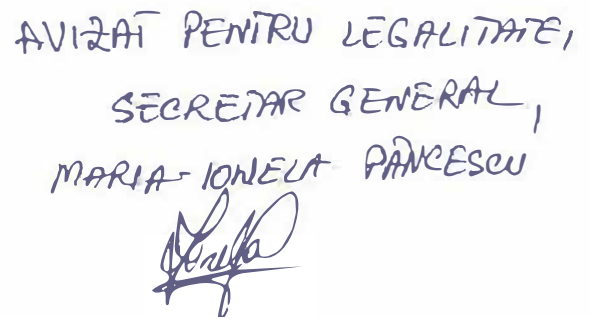 AVIZAT PENTRU LEGALITATE,
SECRETAR GENERAL,
MARIA-IONELA PÂNCESCU